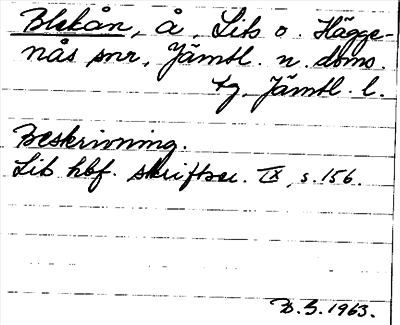 Blekån, å, Lits o. Hägge-
nås snr, Jämtl. n. doms.
tg, Jämtl. l.
Beskrivning.
Lits hbf. skriftser. IX, s. 156.
B. S. 1963.